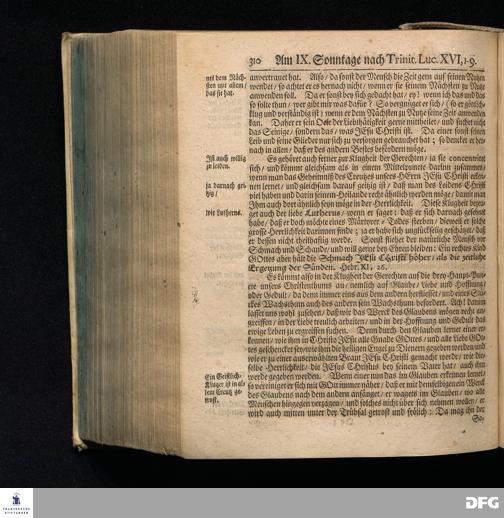 310 Am IX. Sonntage nach Trinit. Luc. XVI, 1-9.
mit dem Näch-
sten mit allem/
das sie hat.
anvertrauet hat. Also/ da sonst der Mensch die Zeit gern auf seinen Nutzen
wendet/ so achtet er es hernach nicht/ wenn er sie seinem Nächsten zu Nutze
anwenden soll. Da er sonst bey sich gedacht hat/ ey! wenn ich das und das
so solte thun/ wer gibt mir was dafür? So vergnüget er sich/ (so er göttlich-
klug und verständig ist) wenn er dem Nächsten zu Nutze seine Zeit anwenden
kan. Daher er sein der Liebthätigkeit gerne mittheilet/ und suchet nicht
das Seinige/ sondern das/ was JEsu Christi ist. Da einer sonst seinen
Leib und seine Glieder nur sich zu versorgen gebrauchet hat; so dencket er her-
nach in allen/ daß er des andern Bestes befördern möge.
Ist auch willig
zu leiden.
Es gehöret auch ferner zur Klugheit der Gerechten/ ja sie concentrirt
sich/ und kömmt gleichsam als in einem Mittelpuncte darinn zusammen/
wenn man das Geheimniß des Creutzes unsers HErrn JEsu Christi erken-
ja darnach gei-
tzig/
nen lernet/ und gleichsam darauf geitzig ist/ daß man des Leidens Christi
viel haben und darin seinem Heilande recht ähnlich werden möge/ damit man
Ihm auch dort ähnlich seyn möge in der Herrlichkeit. Diese Klugheit bezeu-
wie Lutherus.
get auch der liebe Lutherus/ wenn er saget: daß er sich darnach gesehnt
habe/ daß er doch möchte eines Märtyrer-Todes sterben/ dieweil er solche
grosse Herrlichkeit darinnen finde; ja er habe sich unglückselig geschätzet/ daß
er dessen nicht theilhaftig werde. Sonst fliehet der natürliche Mensch vor
Schmach und Schande/ und will gerne bey Ehren bleiben: Ein rechtes Kind
GOttes aber hält die Schmach JEsu Christi höher/ als die zeitliche
Ergetzung der Sünden. Hebr. XI, 26.
Es kömmt also in der Klugheit der Gerechten auf die drey Haupt-Pun-
cte unsers Christenthums an/ nemlich auf Glaube/ Liebe und Hoffnung/
oder Gedult/ da denn immer eins aus dem andern herfliesset/ und eines Stü-
ckes Wachsthum auch des andern sein Wachsthum befördert. Ach! darum
lasset uns wohl zusehen/ daß wir das Werck des Glaubens mögen recht an-
greiffen/ in der Liebe treulich arbeiten/ und in der Hoffnung und Gedult das
ewige Leben zu ergreiffen suchen. Denn durch den Glauben lernet einer er-
kennen/ wie ihm in Christo JEsu alle Gnade GOttes/ und alle Liebe GOt-
tes geschencket sey/ wie ihm die heiligen Engel zu Dienern gegeben werden/ und
wie er zu einer auserwählten Braut JEsu Christi gemacht werde/ wie die-
selbe Herrlichkeit/ die JEsus Christus bey seinem Vater hat/ auch ihm
Ein Geistlich-
Kluger ist in al-
lem Creutz ge-
trost.
werde gegeben werden. Wenn einer nun das im Glauben erkennen lernet/
so vereiniget er sich mit GOtt immer näher/ daß er mit demselbigen im Werck
des Glaubens nach dem andern anfänget/ er wagets im Glauben/ wo alle
Menschen hingegen verzagen/ und solches nicht über sich nehmen wollen/ er
wird auch mitten unter der Trübsal getrost und frölich: Da mag ihn der
FRANCKESCHE
STIFTUNGEN
DFG